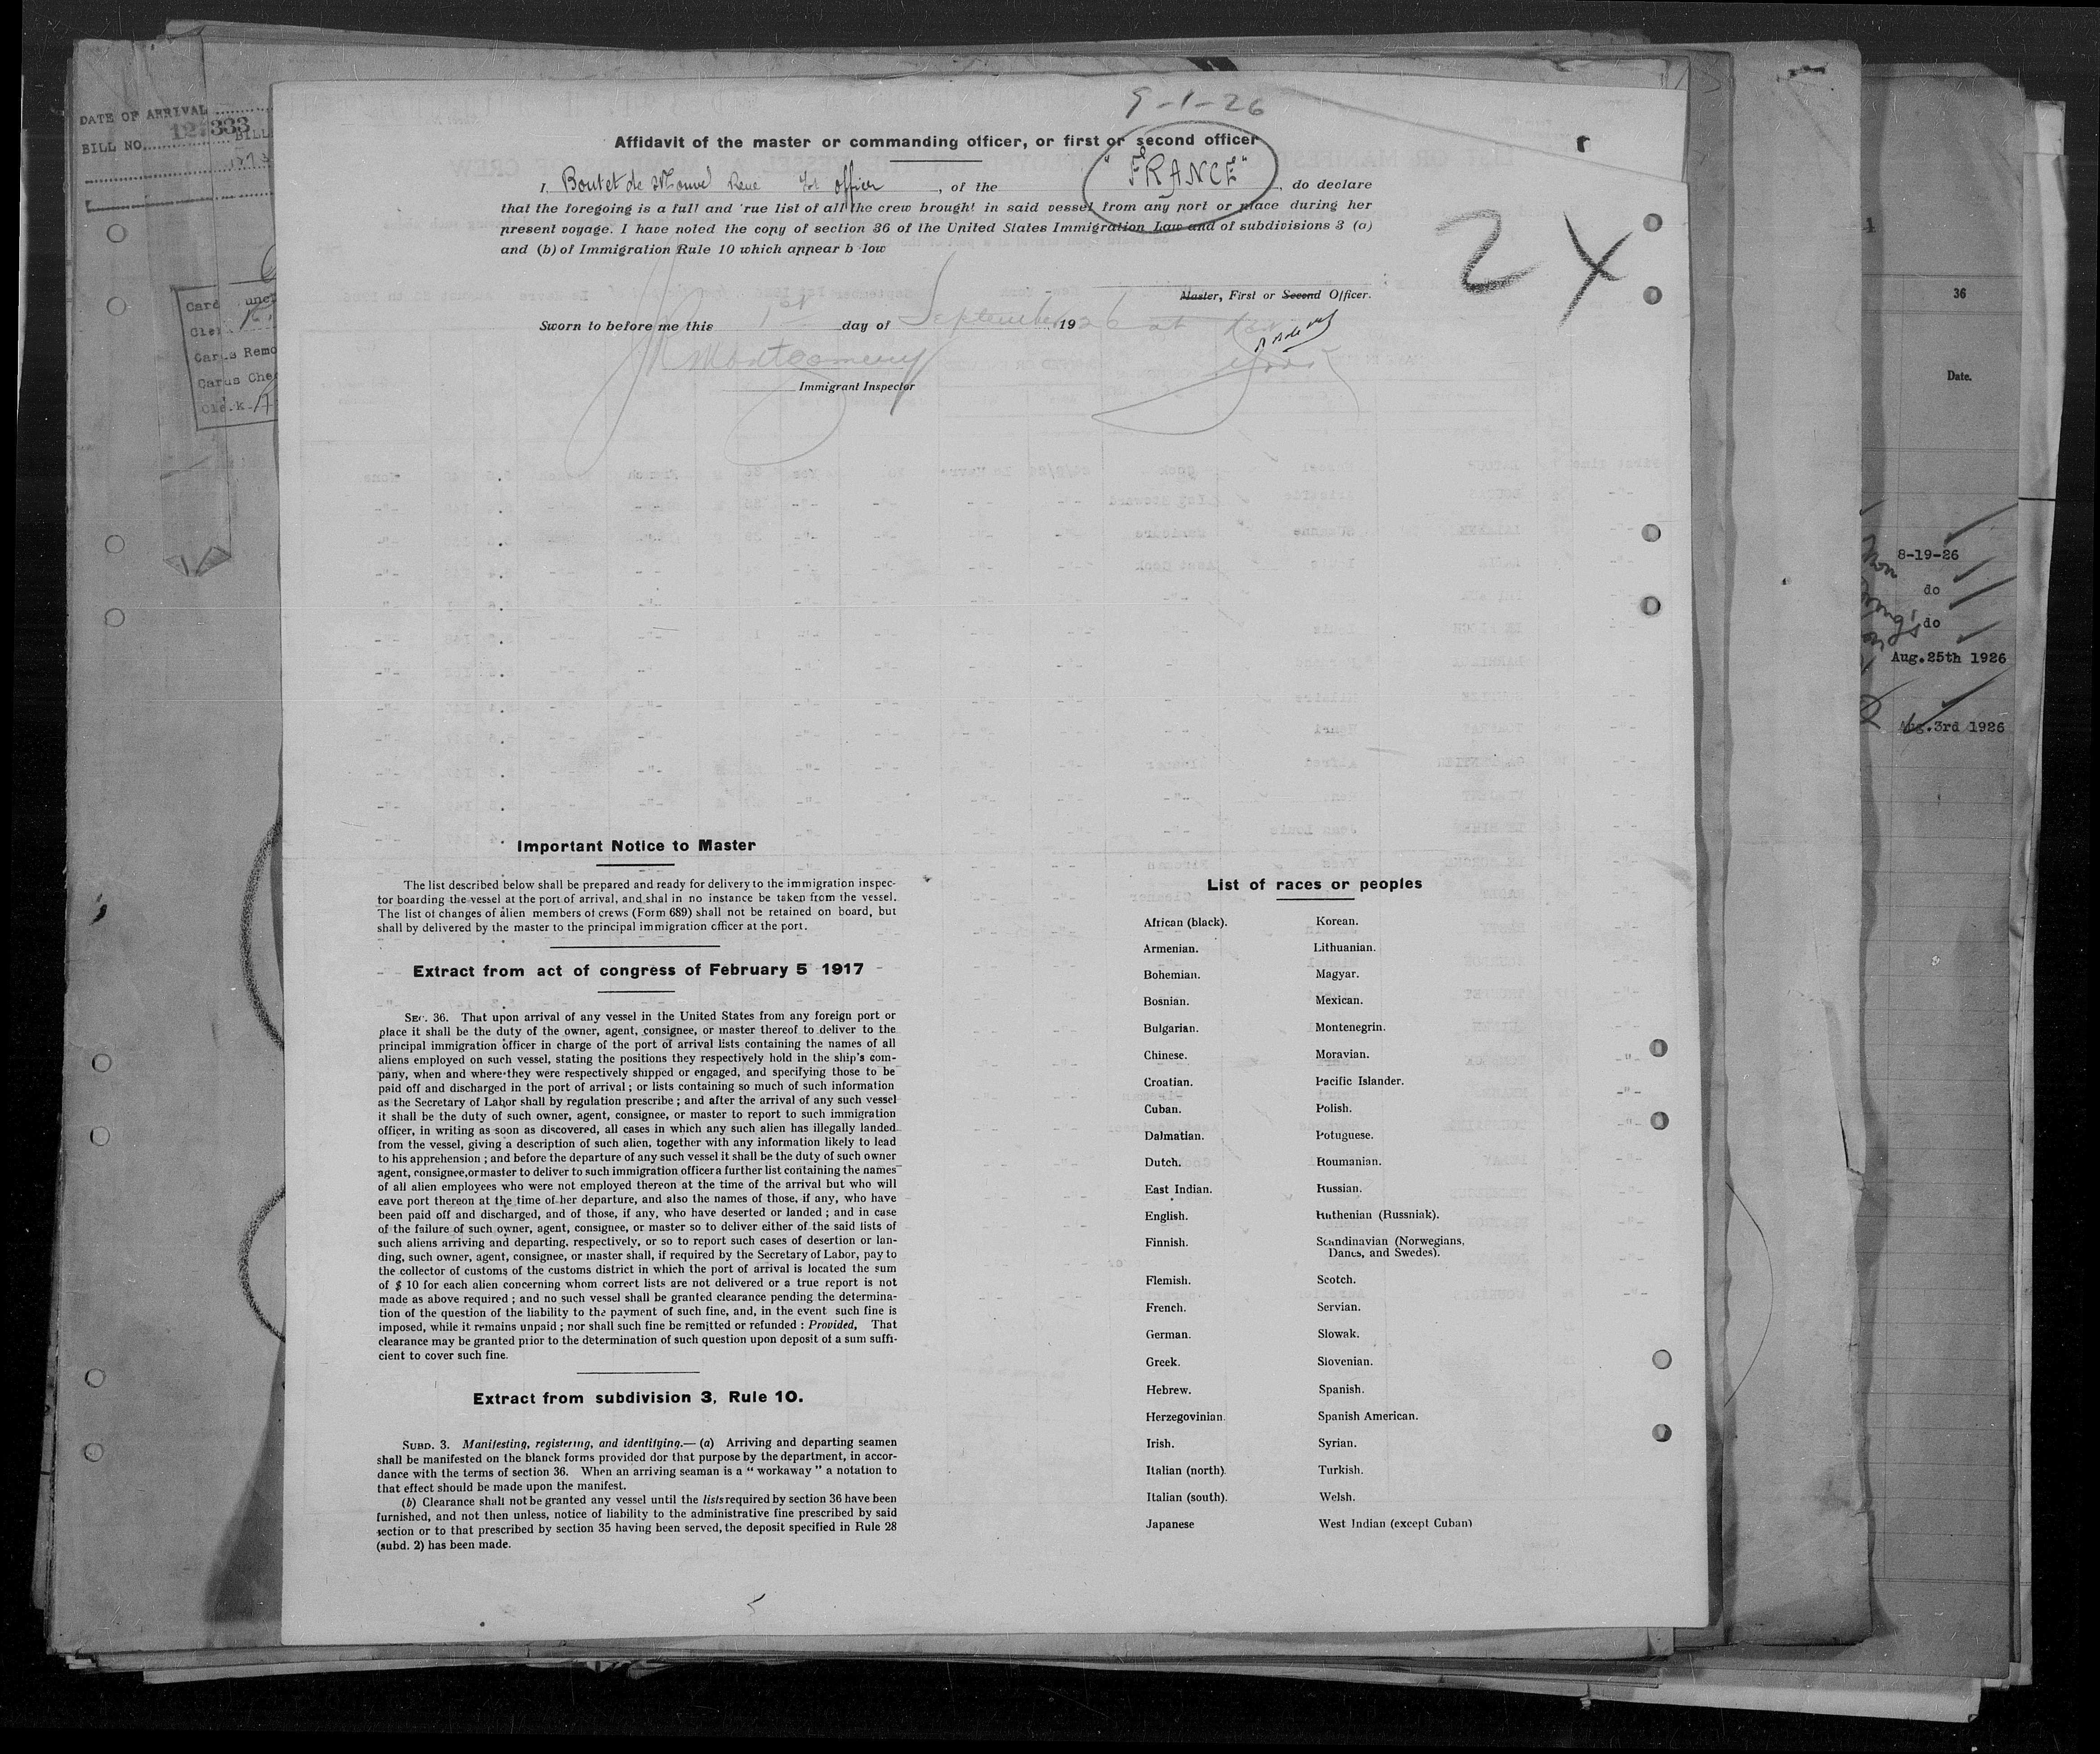 9-1-26
Affidavit of the master or commanding officer, or first or second officer
I, Boutet de Monvel Rene 1st officer, of the "FRANCE", do declare
that the foregoing is a full and 'rue list of all the crew brought in said vessel from any port or place during her
present voyage. I have noted the copy of section 36 of the United States Immigration Law and of subdivisions 3 (a)
and (b) of Immigration Rule 10 which appear b low
2 X
Master, First or Second Officer.
Sworn to before me this 1st day of September 1926 at
Montgomery
Immigrant Inspector
Important Notice to Master
The list described below shall be prepared and ready for delivery to the immigration inspec-
tor boarding the vessel at the port of arrival, and shal in no instance be taken from the vessel.
The list of changes of alien members of crews (Form 689) shall not be retained on board, but
shall by delivered by the master to the principal immigration officer at the port.
Extract from act of congress of February 5 1917
SEC. 36. That upon arrival of any vessel in the United States from any foreign port or
place it shall be the duty of the owner, agent, consignee, or master thereof to deliver to the
principal immigration officer in charge of the port of arrival lists containing the names of all
aliens employed on such vessel, stating the positions they respectively hold in the ship's com-
pany, when and where they were respectively shipped or engaged, and specifying those to be
paid off and discharged in the port of arrival ; or lists containing so much of such information
as the Secretary of Labor shall by regulation prescribe ; and after the arrival of any such vessel
it shall be the duty of such owner, agent, consignee, or master to report to such immigration
officer, in writing as soon as discovered, all cases in which any such alien has illegally landed
from the vessel, giving a description of such alien, together with any information likely to lead
to his apprehension ; and before the departure of any such vessel it shall be the duty of such owner
agent, consignee, or master to deliver to such immigration officer a further list containing the names
of all alien employees who were not employed thereon at the time of the arrival but who will
eave port thereon at the time of her departure, and also the names of those, if any, who have
been paid off and discharged, and of those, if any, who have deserted or landed ; and in case
of the failure of such owner, agent, consignee, or master so to deliver either of the said lists of
such aliens arriving and departing, respectively, or so to report such cases of desertion or lan-
ding, such owner, agent, consignee, or master shall, if required by the Secretary of Labor, pay to
the collector of customs of the customs district in which the port of arrival is located the sum
of $ 10 for each alien concerning whom correct lists are not delivered or a true report is not
made as above required ; and no such vessel shall be granted clearance pending the determina-
tion of the question of the liability to the payment of such fine, and, in the event such fine is
imposed, while it remains unpaid ; nor shall such fine be remitted or refunded : Provided, That
clearance may be granted prior to the determination of such question upon deposit of a sum suffi-
cient to cover such fine.
Extract from subdivision 3, Rule 10.
SUBD. 3. Manifesting, registering, and identifying.— (a) Arriving and departing seamen
shall be manifested on the blanck forms provided dor that purpose by the department, in accor-
dance with the terms of section 36. When an arriving seaman is a " workaway " a notation to
that effect should be made upon the manifest.
(b) Clearance shall not be granted any vessel until the lists required by section 36 have been
furnished, and not then unless, notice of liability to the administrative fine prescribed by said
section or to that prescribed by section 35 having been served, the deposit specified in Rule 28
(subd. 2) has been made.
List of races or peoples
African (black).
Armenian.
Bohemian.
Bosnian.
Bulgarian.
Chinese.
Croatian.
Cuban.
Dalmatian.
Dutch.
East Indian.
English.
Finnish.
Flemish.
French.
German.
Greek.
Hebrew.
Herzegovinian.
Irish.
Italian (north)
Italian (south).
Japanese
Korean.
Lithuanian.
Magyar.
Mexican.
Montenegrin.
Moravian.
Pacific Islander.
Polish.
Potuguese.
Roumanian.
Russian.
Ruthenian (Russniak).
Scandinavian (Norwegians,
Danes, and Swedes).
Scotch.
Servian.
Slowak.
Slovenian.
Spanish.
Spanish American.
Syrian.
Turkish.
Welsh.
West Indian (except Cuban)
DATE OF ARRIVAL
BILL NO.
36
Date.
8-19-26
do
do
Aug.25th 1926
Aug.3rd 1926